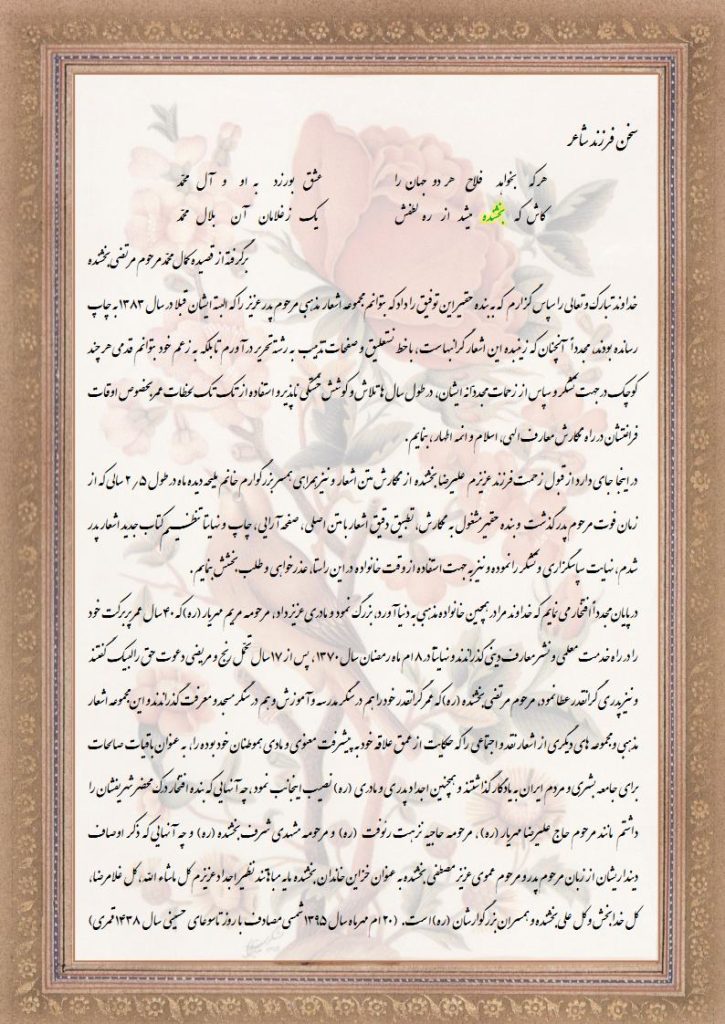 سخن فرزند شاعر
هر که بخواهد فلاح هر دو جهان را عشق بورزد به او و آل محمد
کاش که بخشنده میشد از ره لطفش یک ز غلامان آن بلال محمد
برگرفته از قصیده کمال محمد مرحوم مرتضی بخشنده
خداوند تبارک و تعالی را سپاس گزارم که به بنده حقیر این توفیق را داد که بتوانم مجموعه اشعار مذهبی مرحوم پدر عزیز را که البته ایشان قبلا در سال ۱۳۸۳ به چاپ
رسانده بودند، مجدداً آنچنان که زیبنده این اشعار گرانبهاست، با خط نستعلیق و صفحات تذهیب به رشته تحریر در آورم تا بلکه به زعم خود بتوانم قدمی هر چند
کوچک در جهت تشکر و سپاس از زحمات مجددانه ایشان، در طول سال ها تلاش و کوشش خستگی ناپذیر و استفاده از تک تک لحظات عمر بخصوص اوقات
فراغتشان در راه نگارش معارف الهی، اسلام و ائمه اطهار، بنمایم.
در اینجا جای دارد از قبول زحمت فرزند عزیزم علیرضا بخشنده از نگارش متن اشعار و نیز همراهی همسر بزرگوارم خانم ملیحه دیده ماه در طول ۲٫۵ سالی که از
زمان فوت مرحوم پدر گذشت و بنده حقیر مشغول به نگارش، تطبیق دقیق اشعار با متن اصلی، صفحه آرایی، چاپ و نهایتا تنظیم کتاب جدید اشعار پدر
شدم، نهایت سپاسگزاری و تشکر را نموده و نیز به جهت استفاده از وقت خانواده در این راستا، عذرخواهی و طلب بخشش نمایم.
در پایان مجدداً افتخار می نمایم که خداوند مرا در همچین خانواده مذهبی به دنیا آورد، بزرگ نمود و مادری عزیز داد، مرحومه مریم مهریار (ره) که ۴۰ سال عمر پربرکت خود
را در راه خدمت معلمی و نشر معارف دینی گذراندند و نهایتا در ۱۸ام ماه رمضان سال ۱۳۷۰، پس از ۱۷ سال تحمل رنج و مریضی دعوت حق را لبیک گفتند
و نیز پدری گرانقدر عطا نمود، مرحوم مرتضی بخشنده (ره) که عمر گرانقدر خود را هم در سنگر مدرسه و آموزش و هم در سنگر مسجد و معرفت گذراندند و این مجموعه اشعار
مذهبی و مجموعه های دیگری از اشعار نقد و اجتماعی را که حکایت از عمق علاقه خود به پیشرفت معنوی و مادی هموطنان خود بوده را، به عنوان باقیات صالحات
برای جامعه بشری و مردم ایران به یادگار گذاشتند و همچنین اجداد پدری و مادری (ره) نصیب اینجانب نمود، چه آنهایی که بنده افتخار درک محضر شریفشان را
داشتم مانند مرحوم حاج علیرضا مهریار (ره)، مرحومه حاجیه نزهت رئوفت (ره) و مرحومه مشهدی شرف بخشنده (ره) و چه آنهایی که ذکر اوصاف
دیندارشان از زبان مرحوم پدر و مرحوم عموی عزیز مصطفی بخشنده به عنوان خزاین خاندان بخشنده مایه مباهاتند نظیر اجداد عزیزم کل ماشاء الله، کل غلامرضا،
کل خدابخش و کل علی بخشنده و همسران بزرگوارشان (ره) است. (۲۰ام مهرماه سال ۱۳۹۵ شمسی مصادف با روز تاسوعای حسینی سال ۱۴۳۸ قمری)